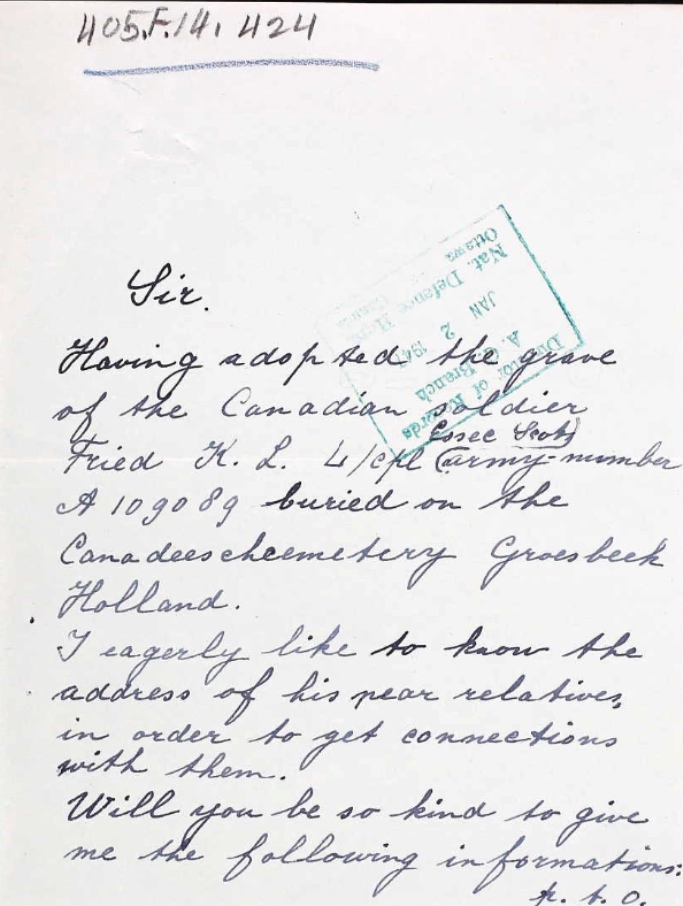 405.F.14. 424
Nat. Defence Hqrs
Ottawa
JAN 2 1947
Director of Records
A. G. Branch
Sir.
Having adopted the grave
of the Canadian soldier
Essec Scots
Fried K. L. L/cpl (army-number
A 109089 buried on the
Canadeescheemetery Groesbeek
Holland.
I eagerly like to know the
address of his near relatives,
in order to get connections
with them.
Will you be so kind to give
me the following informations:
p. t. o.